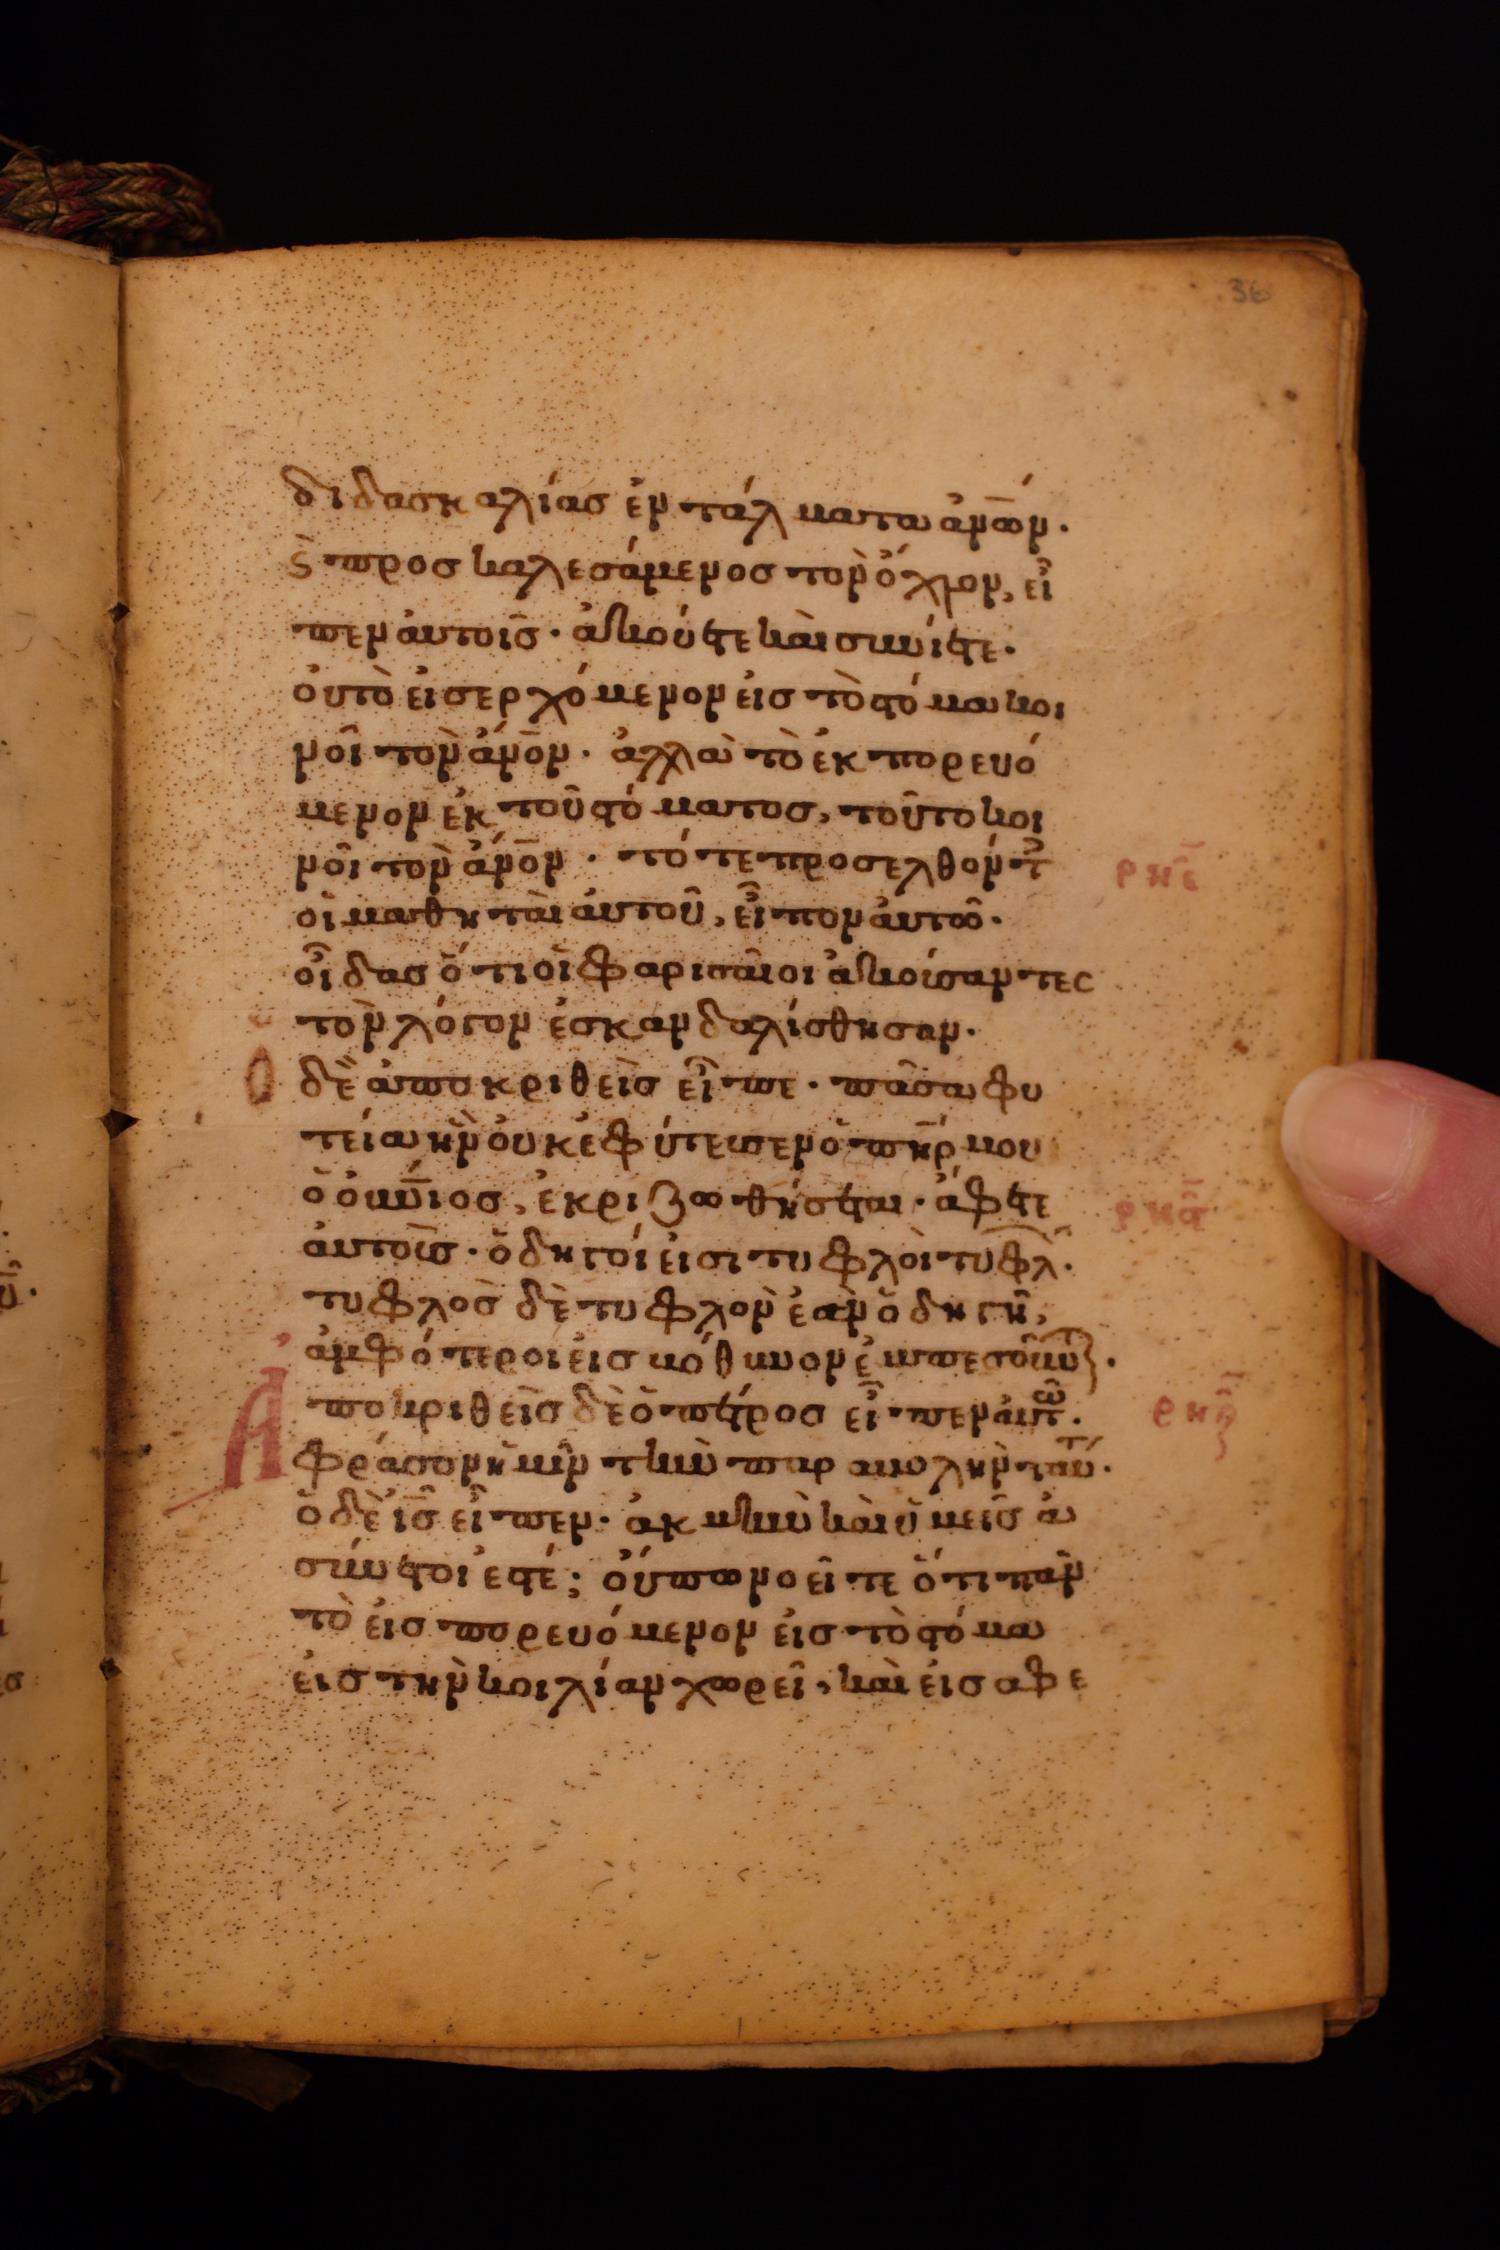 36
διδασκαλίας ἐν τάλματα ἀν̅ων·
ϛ̀ προσκαλεσάμενοσ τὸν ὄχλον, εἶ
πεν ἀυτοῖσ· ἀκούϛε καὶ συνίϛε·
ὀυτὸ ἐισερχόμενον ἐισ τὸ ϛόμα κοι
νοῖ τὸν ἄν̅ον· ἀλλὰ τὸ ἐκπορευό
μενον ἐκ τοῦ ϛόματοσ, τοῦτο κοι
νοῖ τὸν ἄν̅ον· τότε προσελθόντ
ρνε̅
ὁι μαθηταὶ ἀυτοῦ, εἶπον ἀυτῶ·
οἶδασ ὅτι ὁι φαρισαῖοι ἀκούσαντες
τὸν λόγον ἐσκανδαλίσθησαν·
Ο δὲ ἀποκριθεὶσ εἶπε· πᾶσα φυ
τεία ἣν ὀυκ ἐφύτευσεν ὁ πη̅ρ μου
ὁ ὀυν̅ιοσ, ἐκριζωθήσϛαι· ἄφϛε
ρνα̅
ἀυτοὺσ· ὁδηγοί ἐισι τυφλοὶ τυφλ·
τυφλὸσ δὲ τυφλὸν ἐὰν ὁδηγῆ,
ἀμφότεροι ἐισ βόθυνον ἐμπεσοῦν·
Αποκριθεὶσ δὲ ὁ πϛροσ εἶπεν ἀυτῶ·
φράσον ἡμῖν τὴν παραβολὴν τάυτ·
ὁ δὲ ι̅σ εἶπεν· ἀκμὴν καὶ ὑμεῖσ ἀ
σύνϛοί εϛέ; ὀύπω νοεῖτε ὅτι πᾶν
τὸ ἐισπορευόμενον ἐισ τὸ ϛόμα
ἐισ τὴν κοιλίαν χωρεῖ, καὶ ἐισ αφε